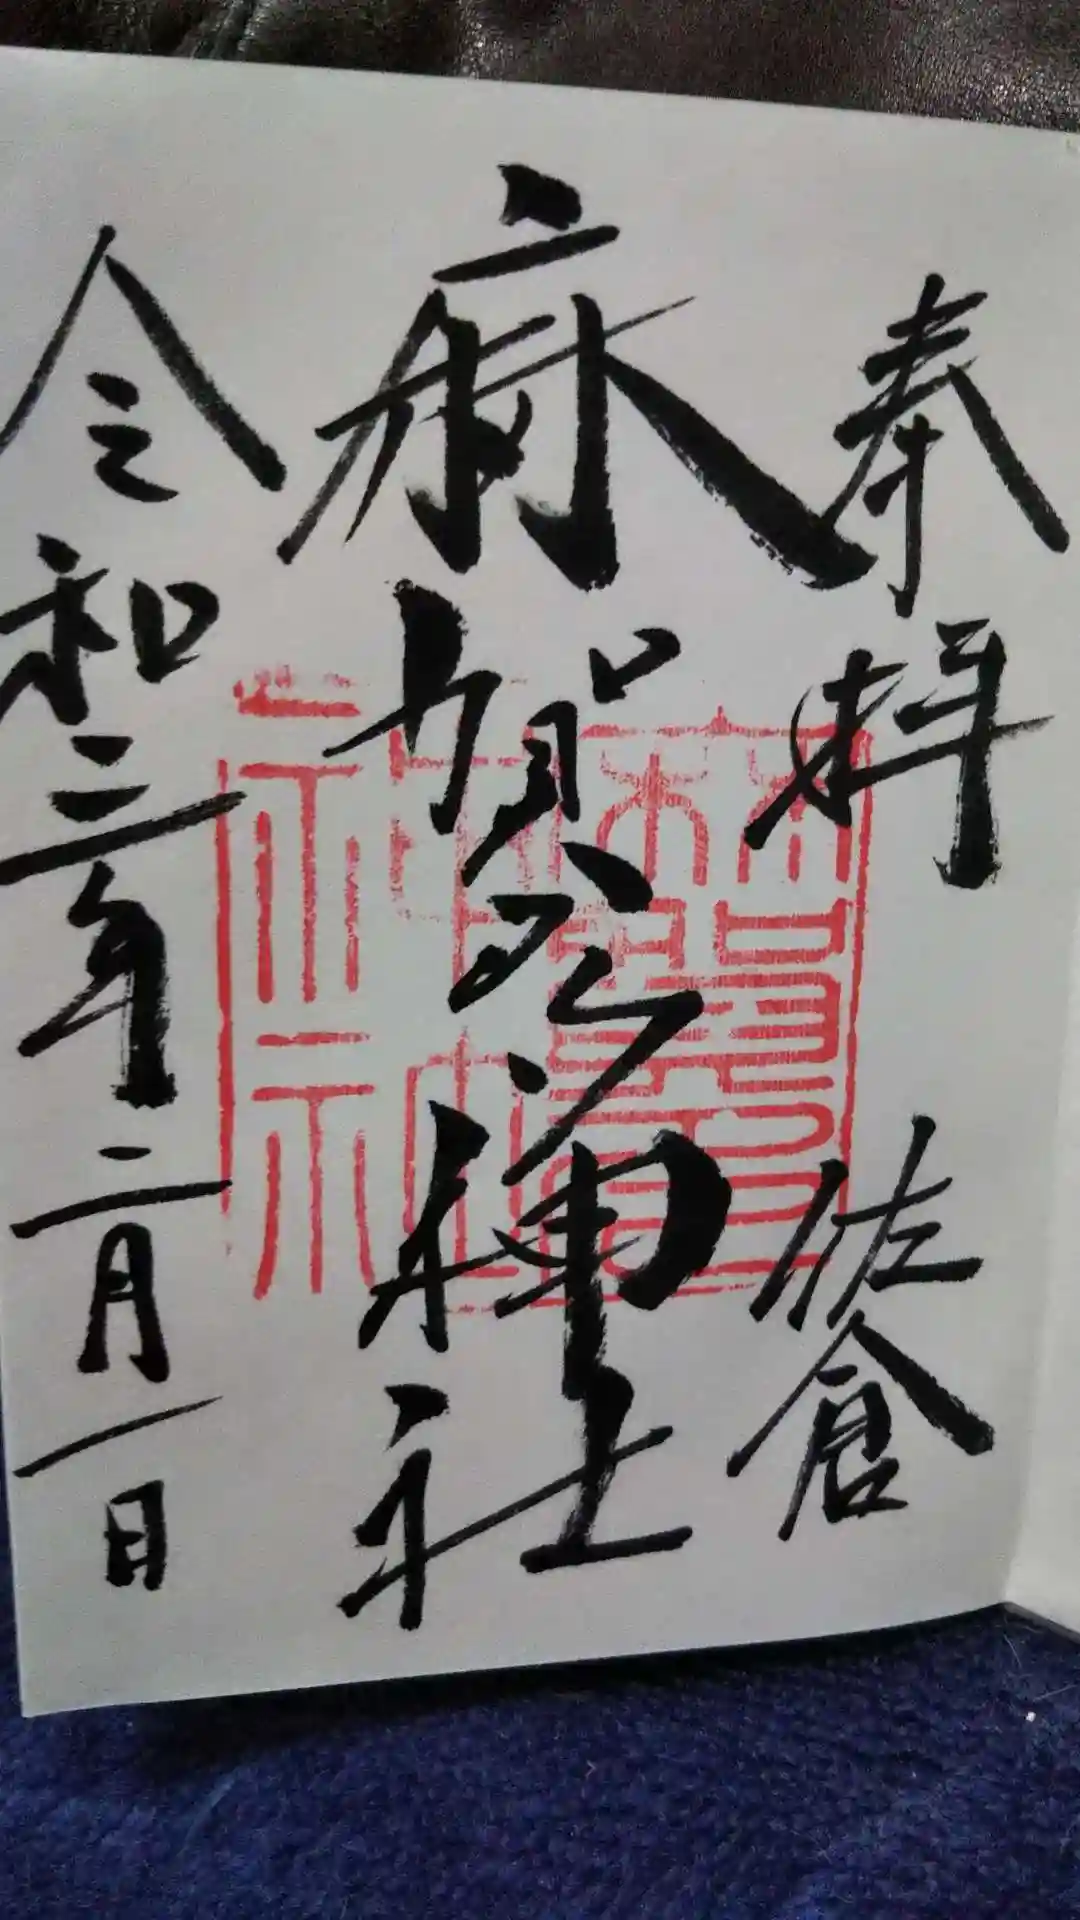 奉拝 佐倉
麻賀多神社
令和三年二月一日
麻賀多
神社